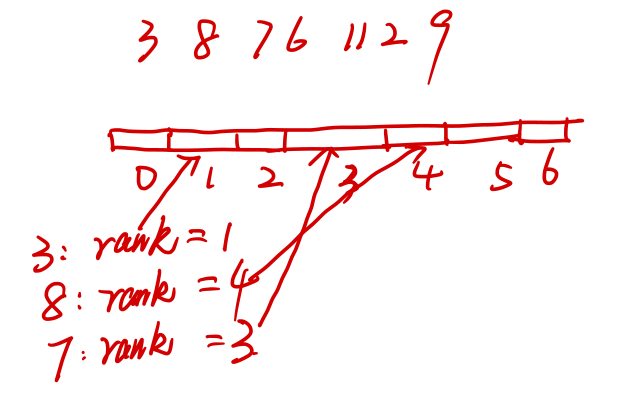 3 8 7 6 11 2 9
0 1 2 3 4 5 6
3: rank = 1
8: rank = 4
7: rank = 3